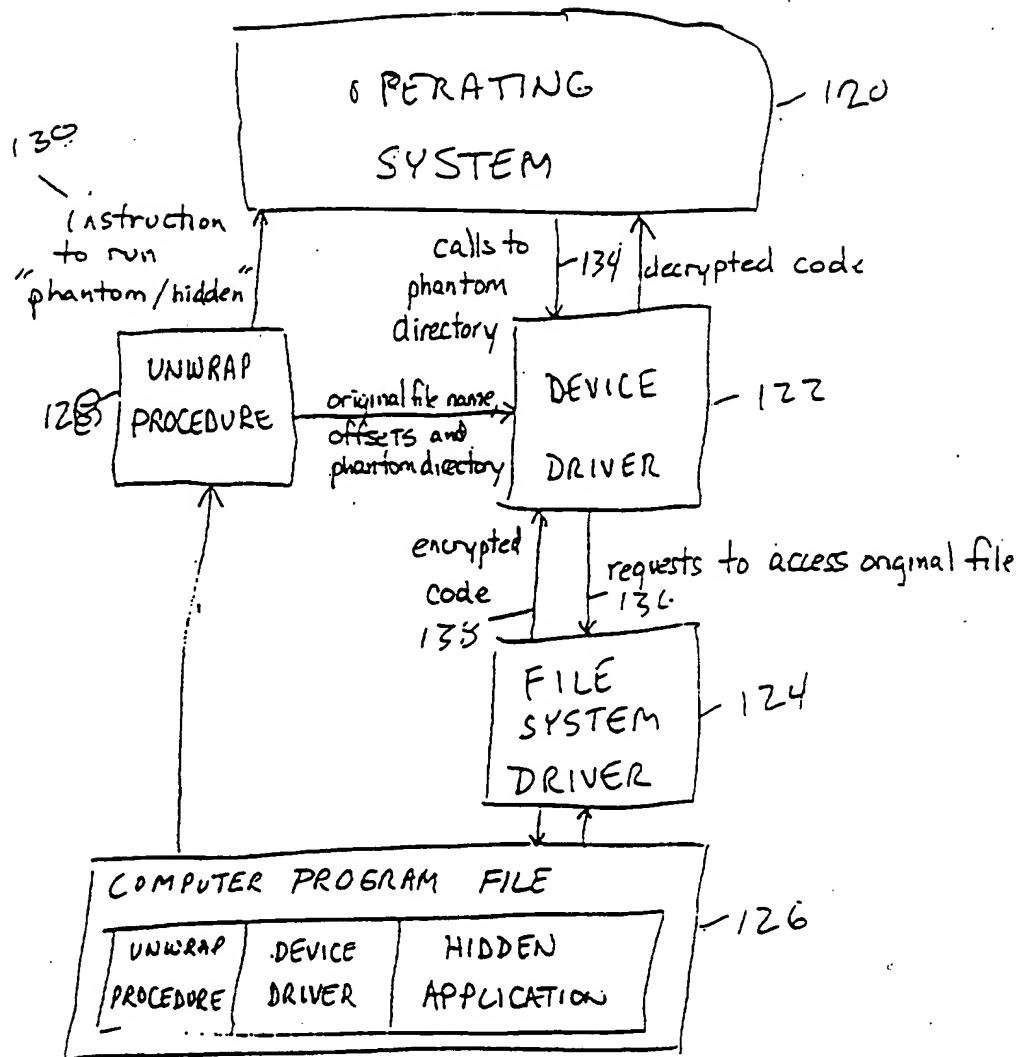 OPERATING
SYSTEM
120
130
instruction
to run
"phantom/hidden"
calls to
phantom
directory
134
decrypted code
UNWRAP
PROCEDURE
original file name,
offsets and
phantom directory
DEVICE
DRIVER
122
encrypted
code
138
requests to access original file
FILE
SYSTEM
DRIVER
124
COMPUTER PROGRAM FILE
UNWRAP
PROCEDURE
DEVICE
DRIVER
HIDDEN
APPLICATION
126